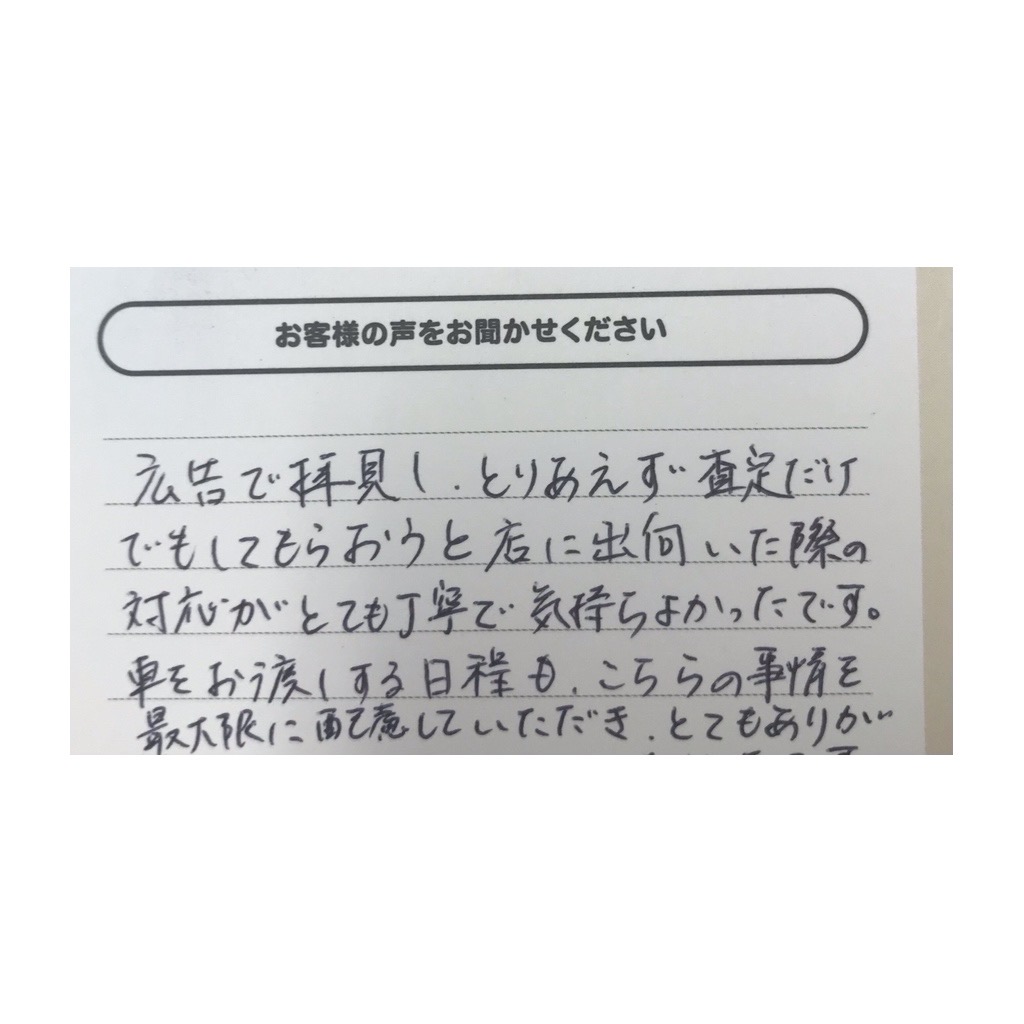 お客様の声をお聞かせください
広告で拝見し、とりあえず査定だけ
でもしてもらおうと店に出向いた際の
対応がとても丁寧で気持ちよかったです。
車をお渡しする日程も、こちらの事情を
最大限に配慮していただき、とてもありが